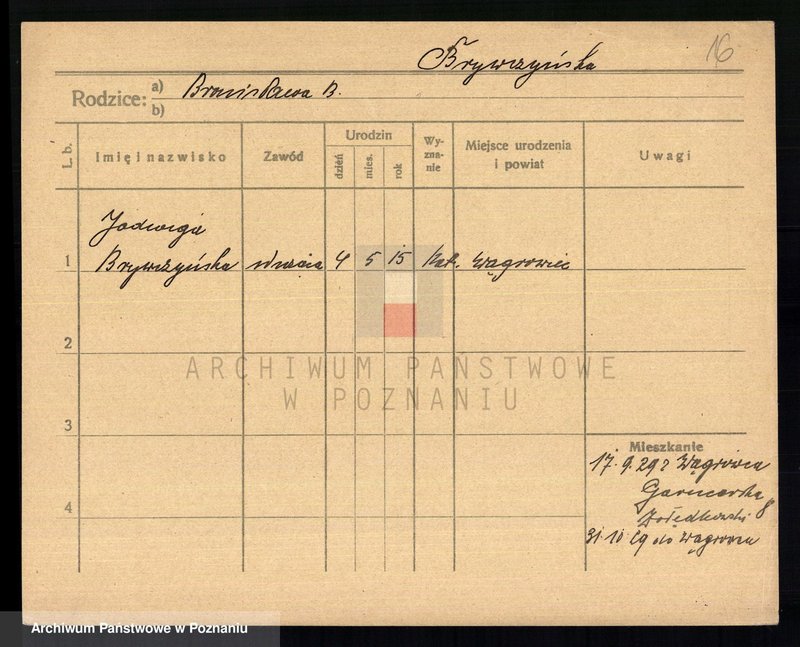 16
Brywczyńska
Rodzice: a) Bronisława B.
b)
L. b.
Imię i nazwisko
Zawód
Urodzin
dzień
mies.
rok
Wy-
zna-
nie
Miejsce urodzenia
i powiat
Uwagi
Jadwiga
1 Brywczyńska 4 5 15 kat. Wągrowiec
2
3
4
ARCHIWUM PAŃSTWOWE
W POZNANIU
Mieszkanie
17. 9. 29 z Wągrowca
Garncarska 8
31 10 29 do Wągrowca
Archiwum Państwowe w Poznaniu